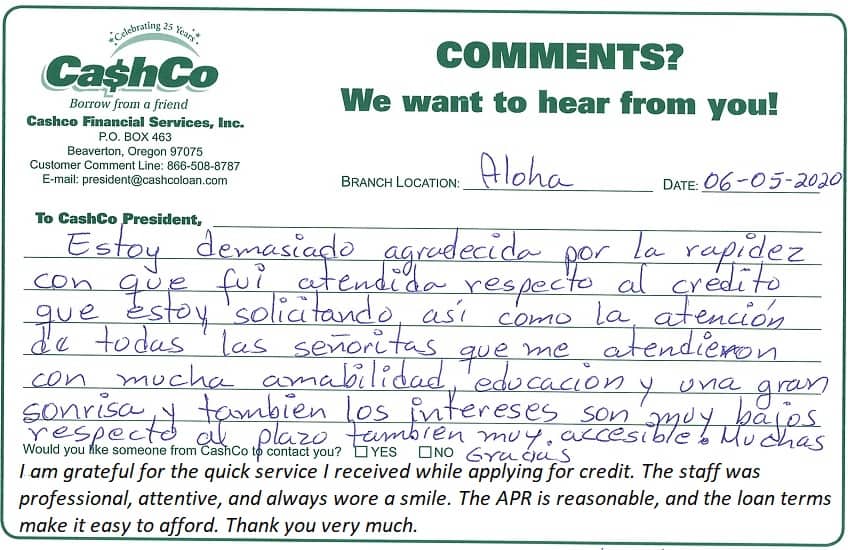 Celebrating 25 Years
Ca$hCo
Borrow from a friend
Cashco Financial Services, Inc.
P.O. BOX 463
Beaverton, Oregon 97075
Customer Comment Line: 866-508-8787
E-mail: president@cashcoloan.com
COMMENTS?
We want to hear from you!
BRANCH LOCATION: Aloha DATE: 06-05-2020
To CashCo President,
Estoy demasiado agradecida por la rapidez
con que fui atendida respecto al crédito
que estoy solicitando, así como la atención
de todas las señoritas que me atendieron
con mucha amabilidad, educación y una gran
sonrisa, y tambien los intereses son muy bajos
respecto al plazo tambien muy accesible. Muchas
Gracias
Would you like someone from CashCo to contact you? ☐YES ☐NO
I am grateful for the quick service I received while applying for credit. The staff was
professional, attentive, and always wore a smile. The APR is reasonable, and the loan terms
make it easy to afford. Thank you very much.